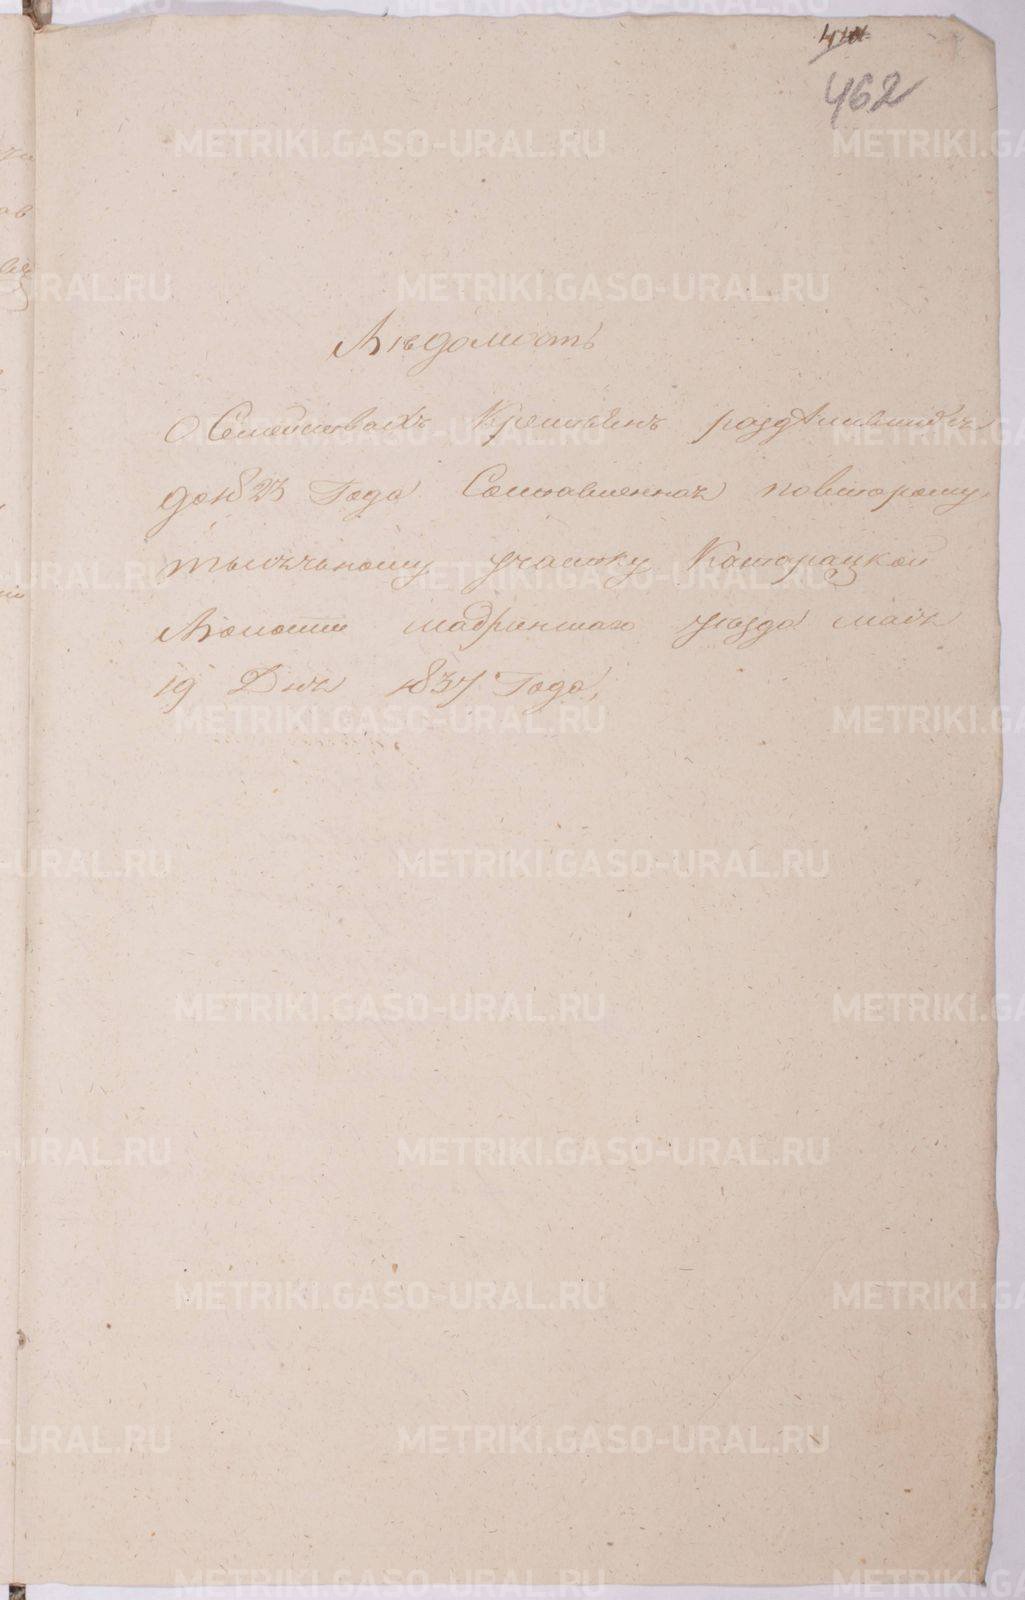 462
Вѣдомость
О Семействахъ Крестьянъ раздѣлившихся
до 1823 Года Составленная повторому
тысячьному участку Каторацкой
Волости шадринскаго уѣзда мая
19 Дня 1837 Года,
METRIKI.GASO-URAL.RU